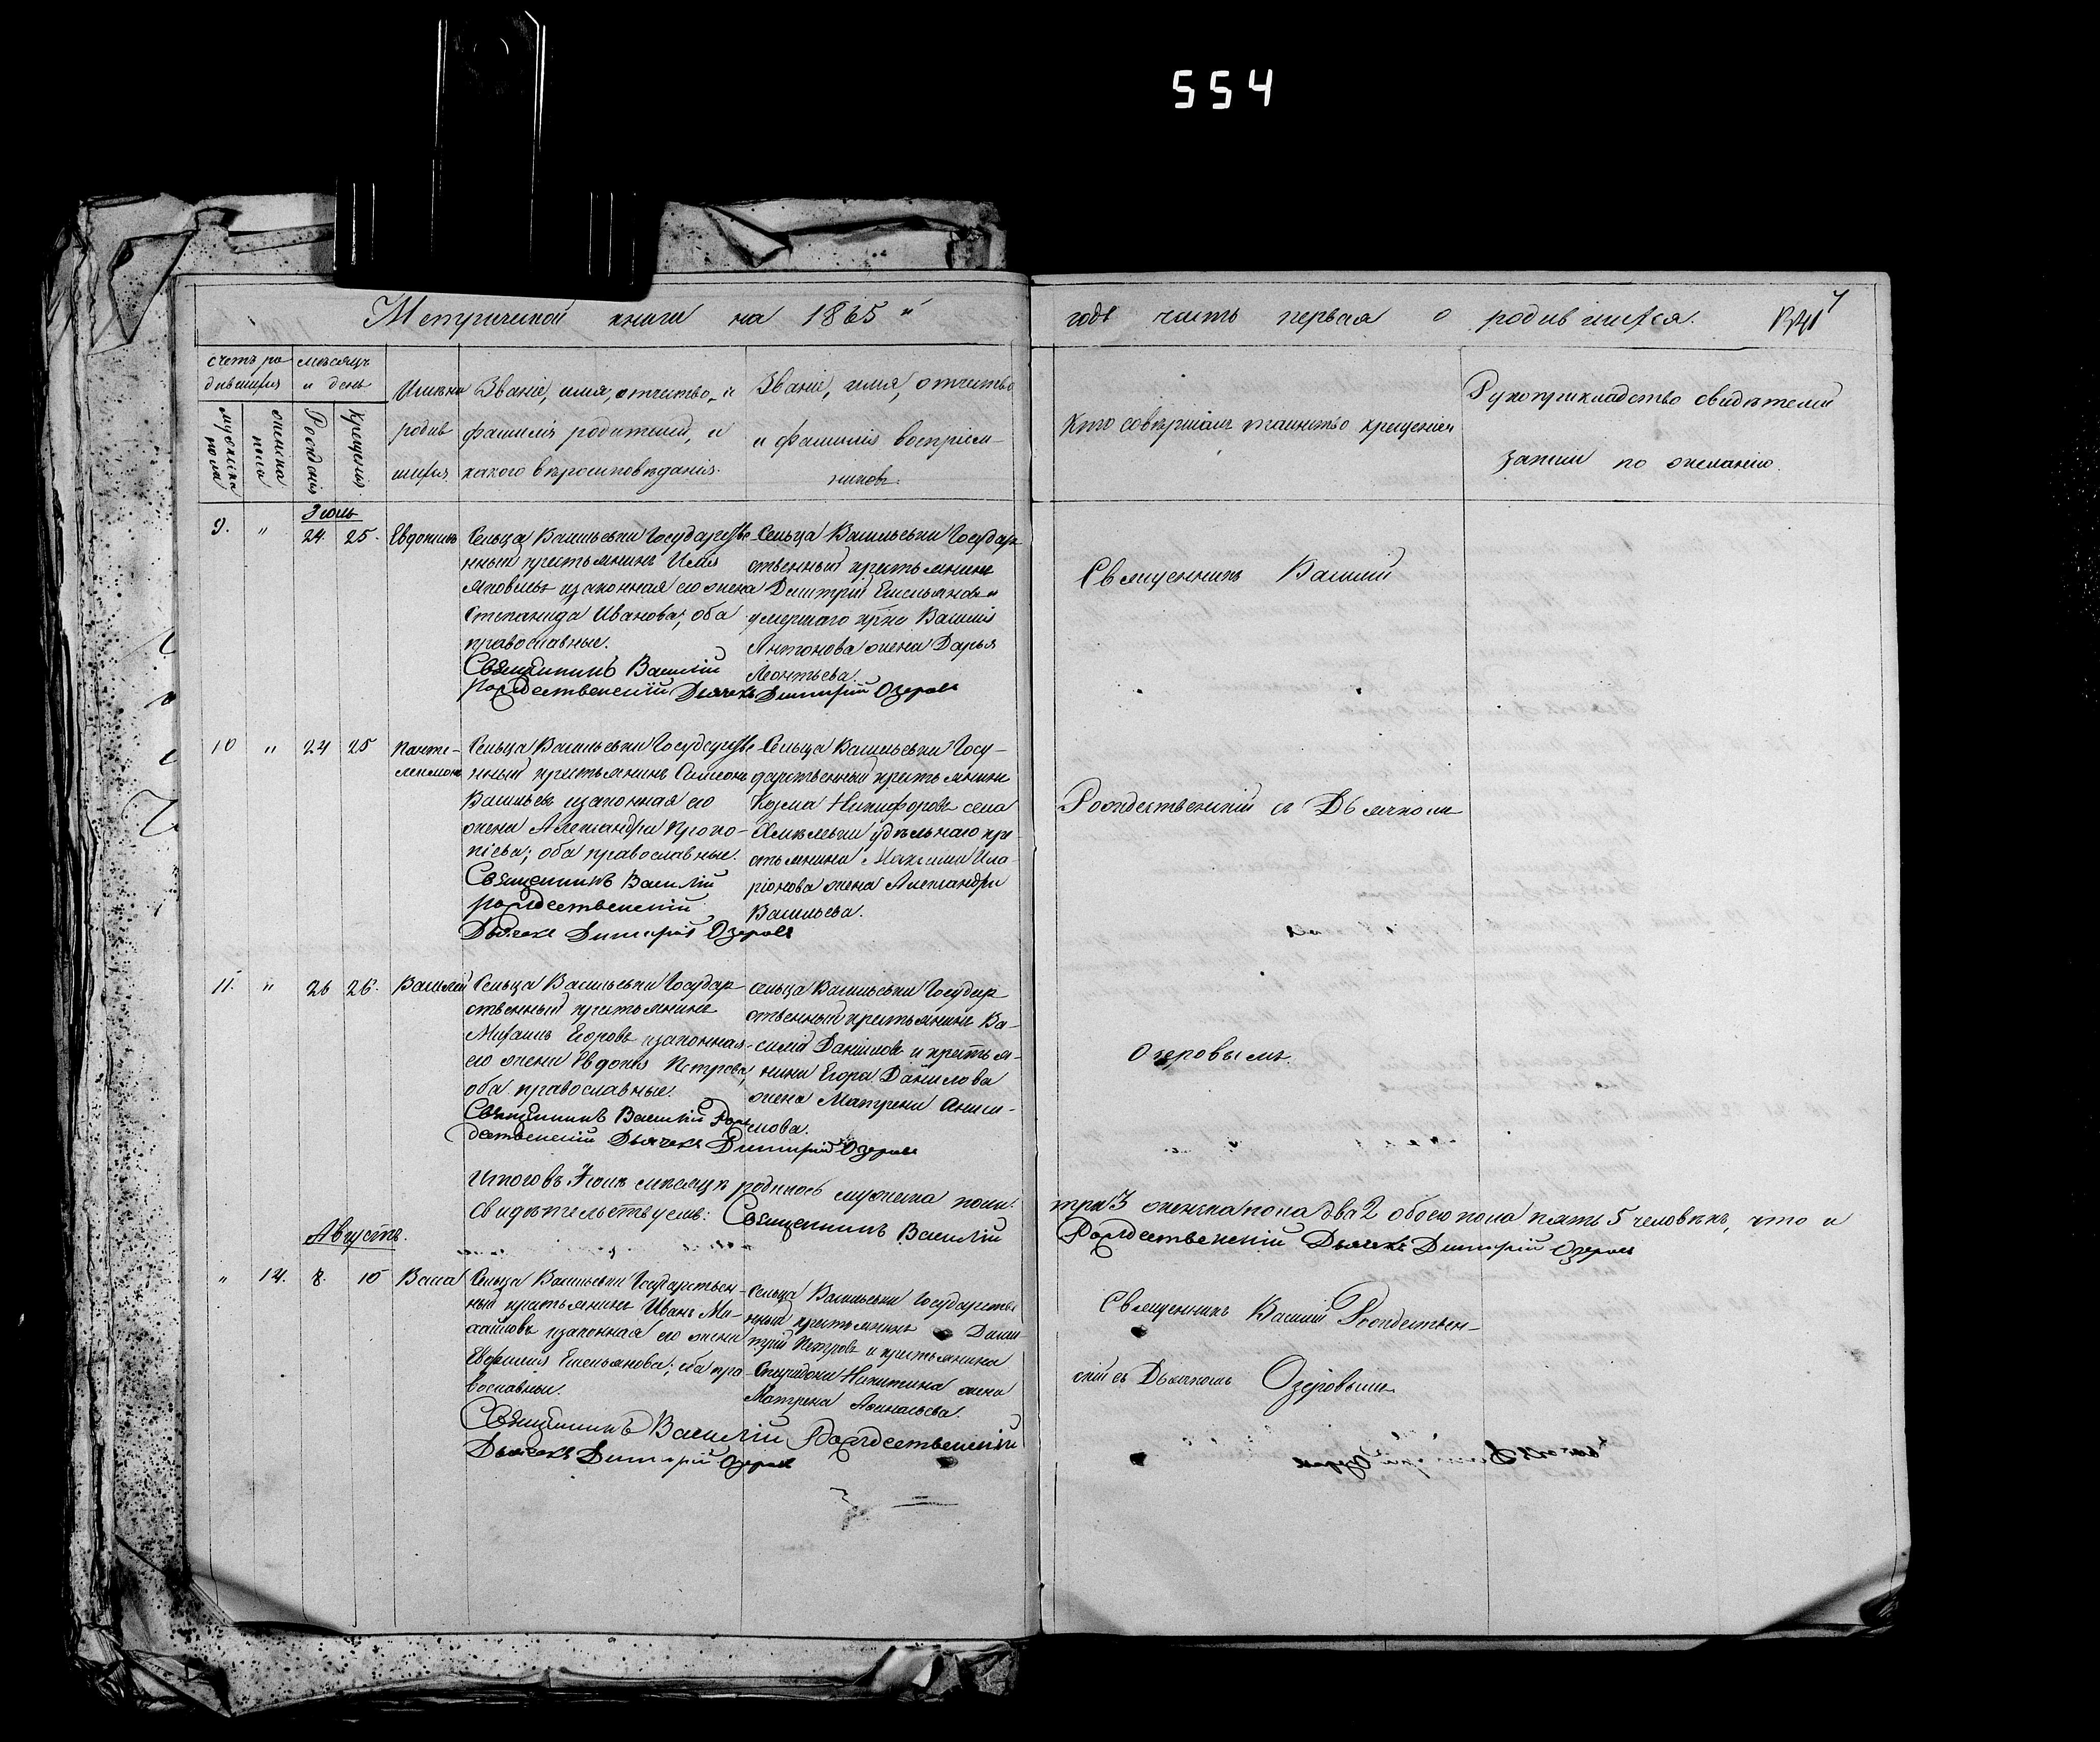 554
Метрической книги на 1865 "
годъ часть первая о родившихся.
счетъ ро
дившихся
мужеска
пола
женска
пола
мѣсяцъ
и день
Рожденія
Крещенія
Имена
родив
шихся
Званіе, имя, отчество, и
фамилія родителей, и
какого вѣроисповѣданія.
Званіе, имя, отчество
и фамилія воспріем-
никовъ.
Кто совершалъ таинство крещенія
Рукоприкладство свидѣтелей
записи по желанію.
Іюль
9. " 24. 25. Евдокимъ
Сельца Васильевки Государстве
нный крестьянинъ Илія
Яковлевъ изаконная его жена
Степанида Иванова; оба
православные.
Священникъ Василій
Рождественскій Дьячекъ Димитрій Озеровъ
Сельца Васильевки Государ
ственный крестьянинъ
Дмитрій Емельяновъ и
умершаго Василія
Антонова жена Дарья
Леонтьева.
Священникъ Василій
10 " 24 25 Панте-
леимонъ
Сельца Васильевки Государстве-
нный крестьянинъ Симеонъ
Васильевъ изаконная его
жена Александра Проко-
піева; оба православные.
Священникъ Василій
Рождественскій
Дьячекъ Димитрій Озеровъ
Сельца Васильевки Госу-
дарственный крестьянинъ
Козма Никифоровъ села
Хмѣлевки удѣльнаго кре
стьянина Максима Ила-
ріонова жена Александра
Васильева.
Рождественскій съ Дьячкомъ
11. " 26 26. Василій
Сельца Васильевки Государ
ственный крестьянинъ
Михаилъ Егоровъ изаконная
его жена Евдокія Петрова;
оба православные.
Священникъ Василій Рож
дественскій Дьячекъ Димитрій Озеровъ
сельца Васильевки Государ
ственный крестьянинъ Ва-
силій Даніиловъ и крестья-
нина Егора Данилова
жена Матрена Аниси-
мова.
Озеровымъ.
Итого въ Іюлѣ мѣсяцѣ родилось мужеска пола
три 3 женска пола два 2 обоего пола пять 5 человѣкъ, что и
свидѣтельствуемъ: Священникъ Василій
Рождественскій Дьячекъ Димитрій Озеровъ
Августъ.
" 14. 8. 10 Васса
Сельца Васильевки Государствен-
ный крестьянинъ Иванъ Ми-
хайловъ изаконная его жена
Евфимія Емельянова; оба пра
вославные.
Священникъ Василій Рождественскій
Дьячекъ Димитрій Озеровъ
Сельца Васильевки Государстве
нный крестьянинъ Дими-
трій Петровъ и крестьянина
Спиридона Никитина жена
Матрена Афанасьева.
Священникъ Василій Рождествен-
скій съ Дьячкомъ Озеровымъ